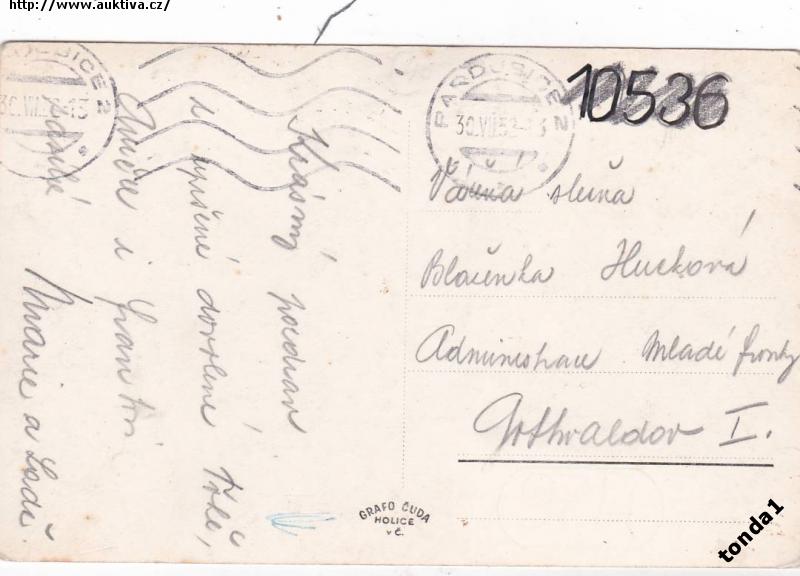 http://www.auktiva.cz/
PARDUBICE 2
30.VII.52-13
PARDUBICE 2
30.VII.52-13
10536
Krásný pozdrav
s dovolené Tobě,
i
Marie a
Vážená slečna
Blaženka Hucková
Administrace Mladé fronty
Gottwaldov I.
GRAFO ČUDA
HOLICE
v Č.
tonda1